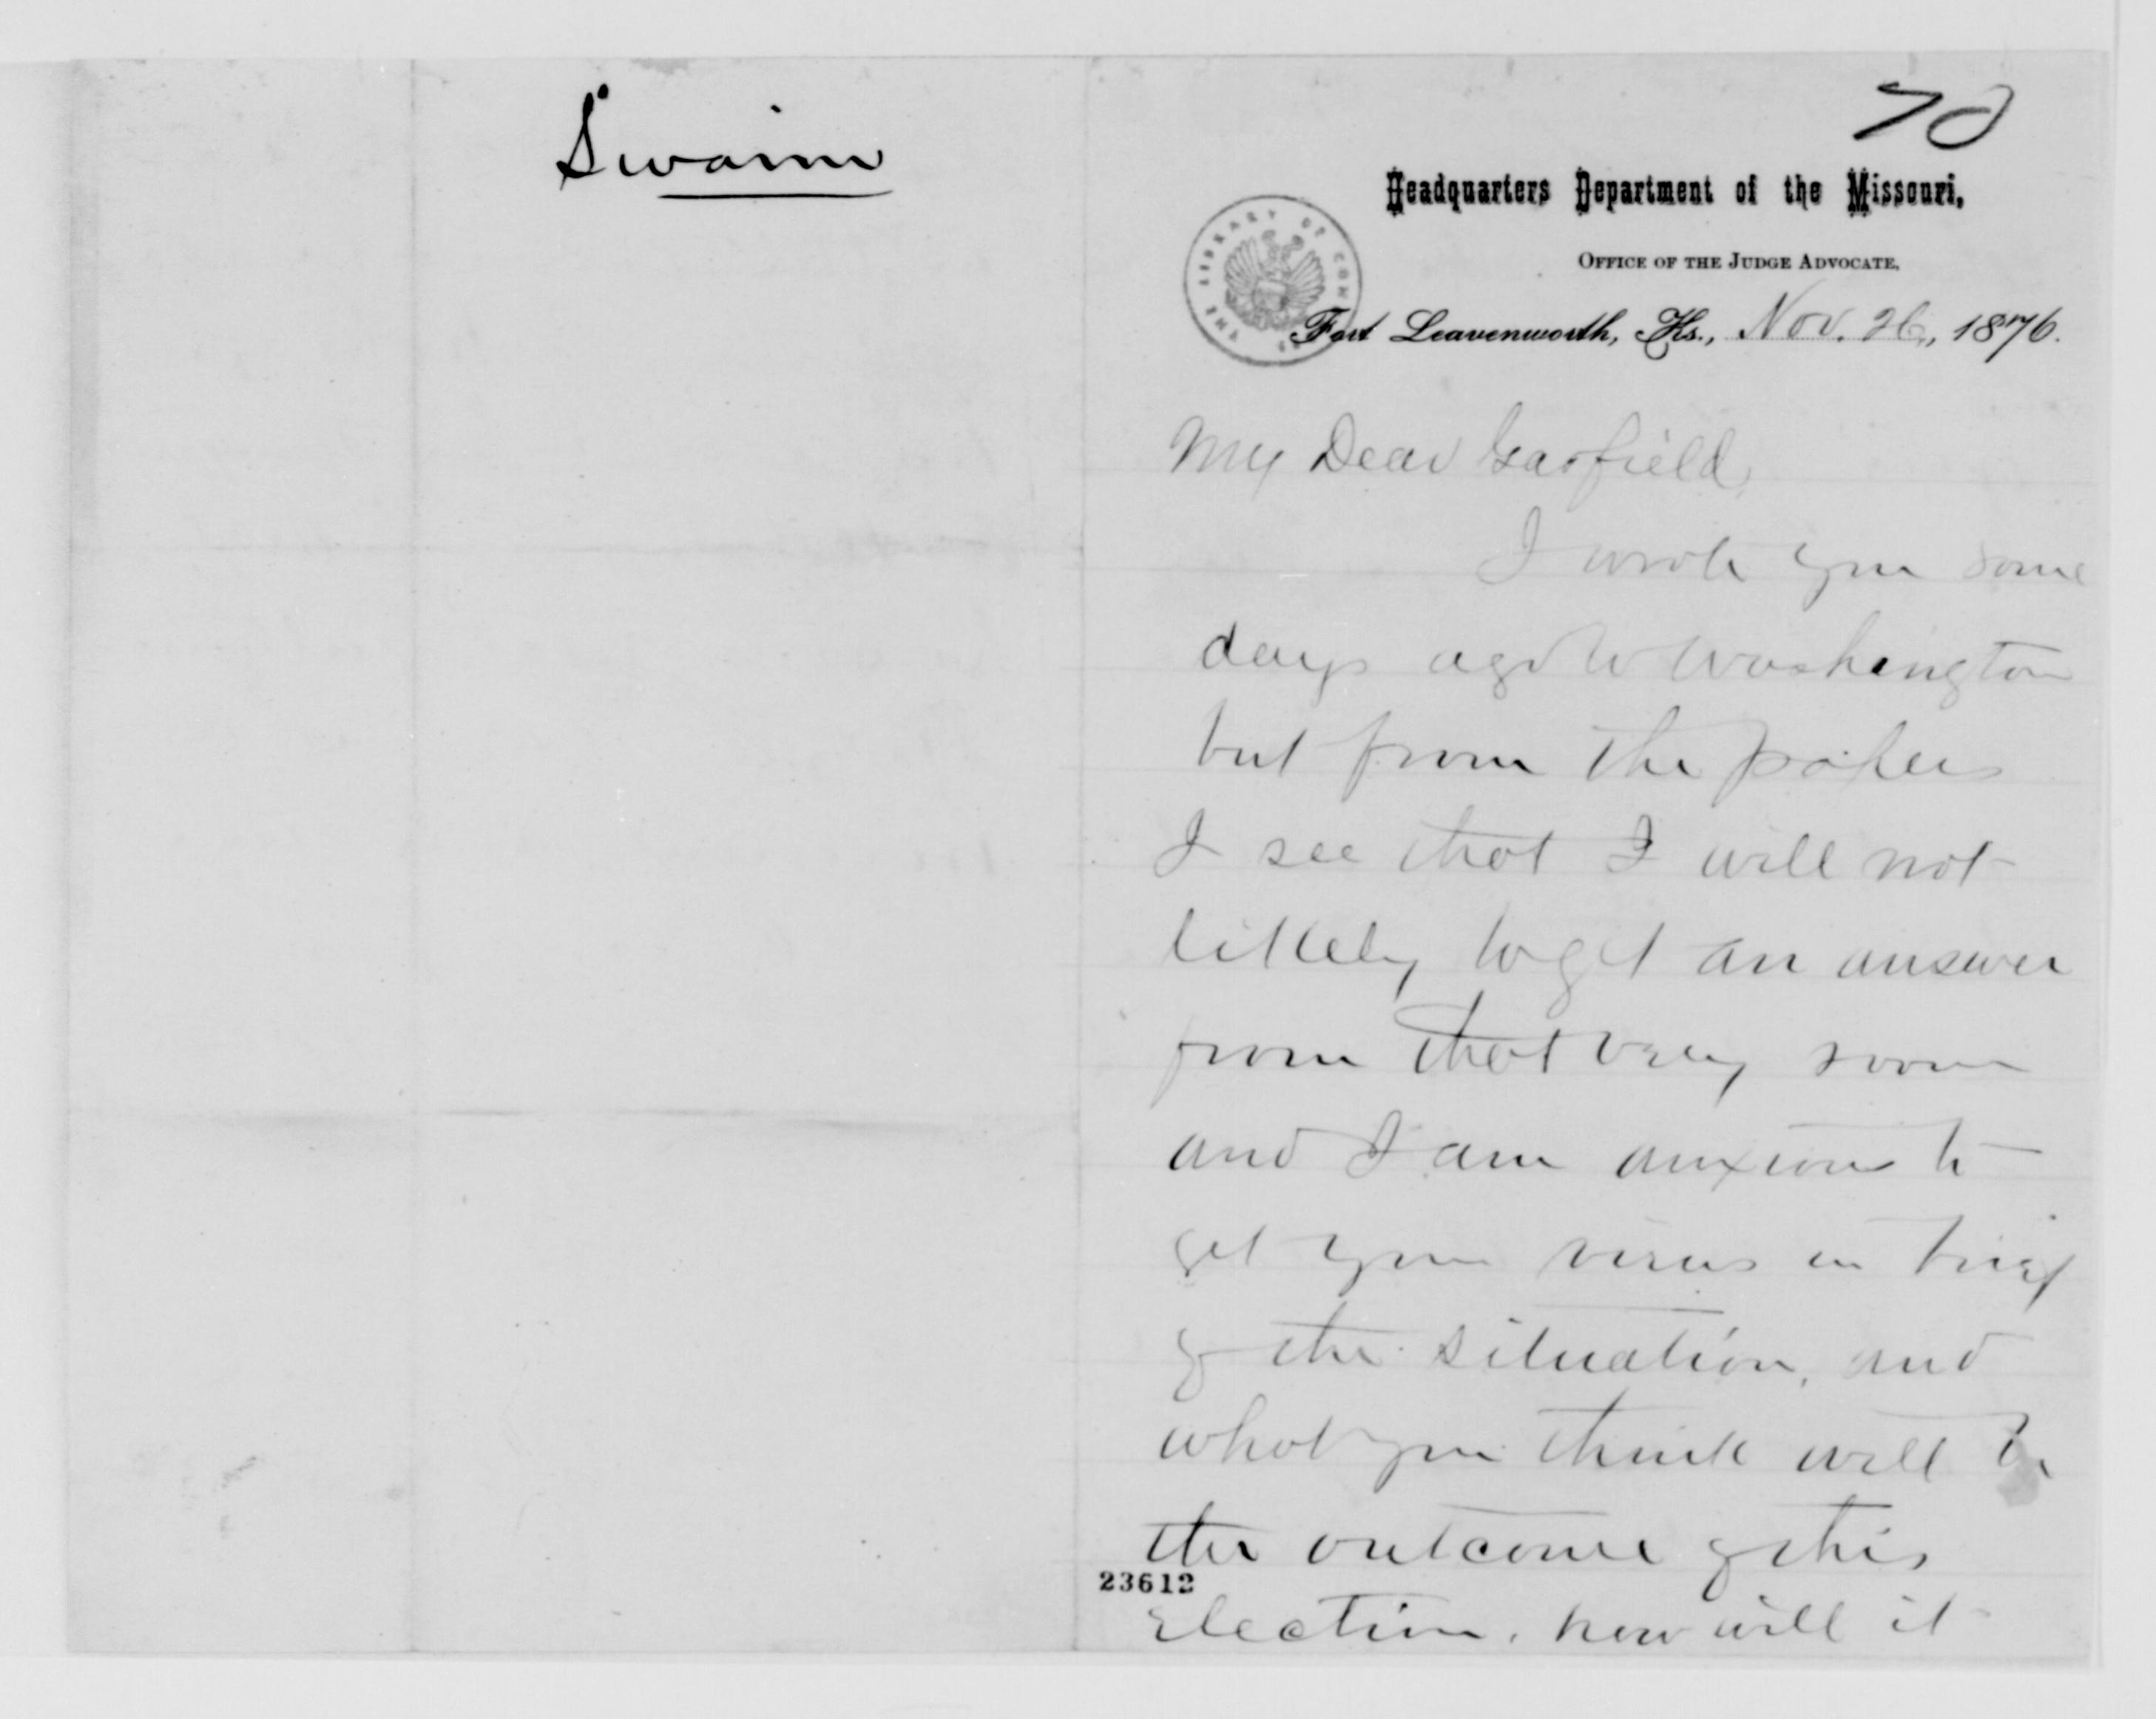 Swaim
70
Headquarters Department of the Missouri,
OFFICE OF THE JUDGE ADVOCATE,
THE LIBRARY OF CONGRESS
Fort Leavenworth, Ks., Nov. 26, 1876.
My Dear Garfield,
I wrote you some
days ago to Washington
but from the papers
I see that I will not
likely to get an answer
from that very soon
and I am anxious to
get your views in brief
of the situation, and
what you think will be
the outcome of this
23612
Election. how will it